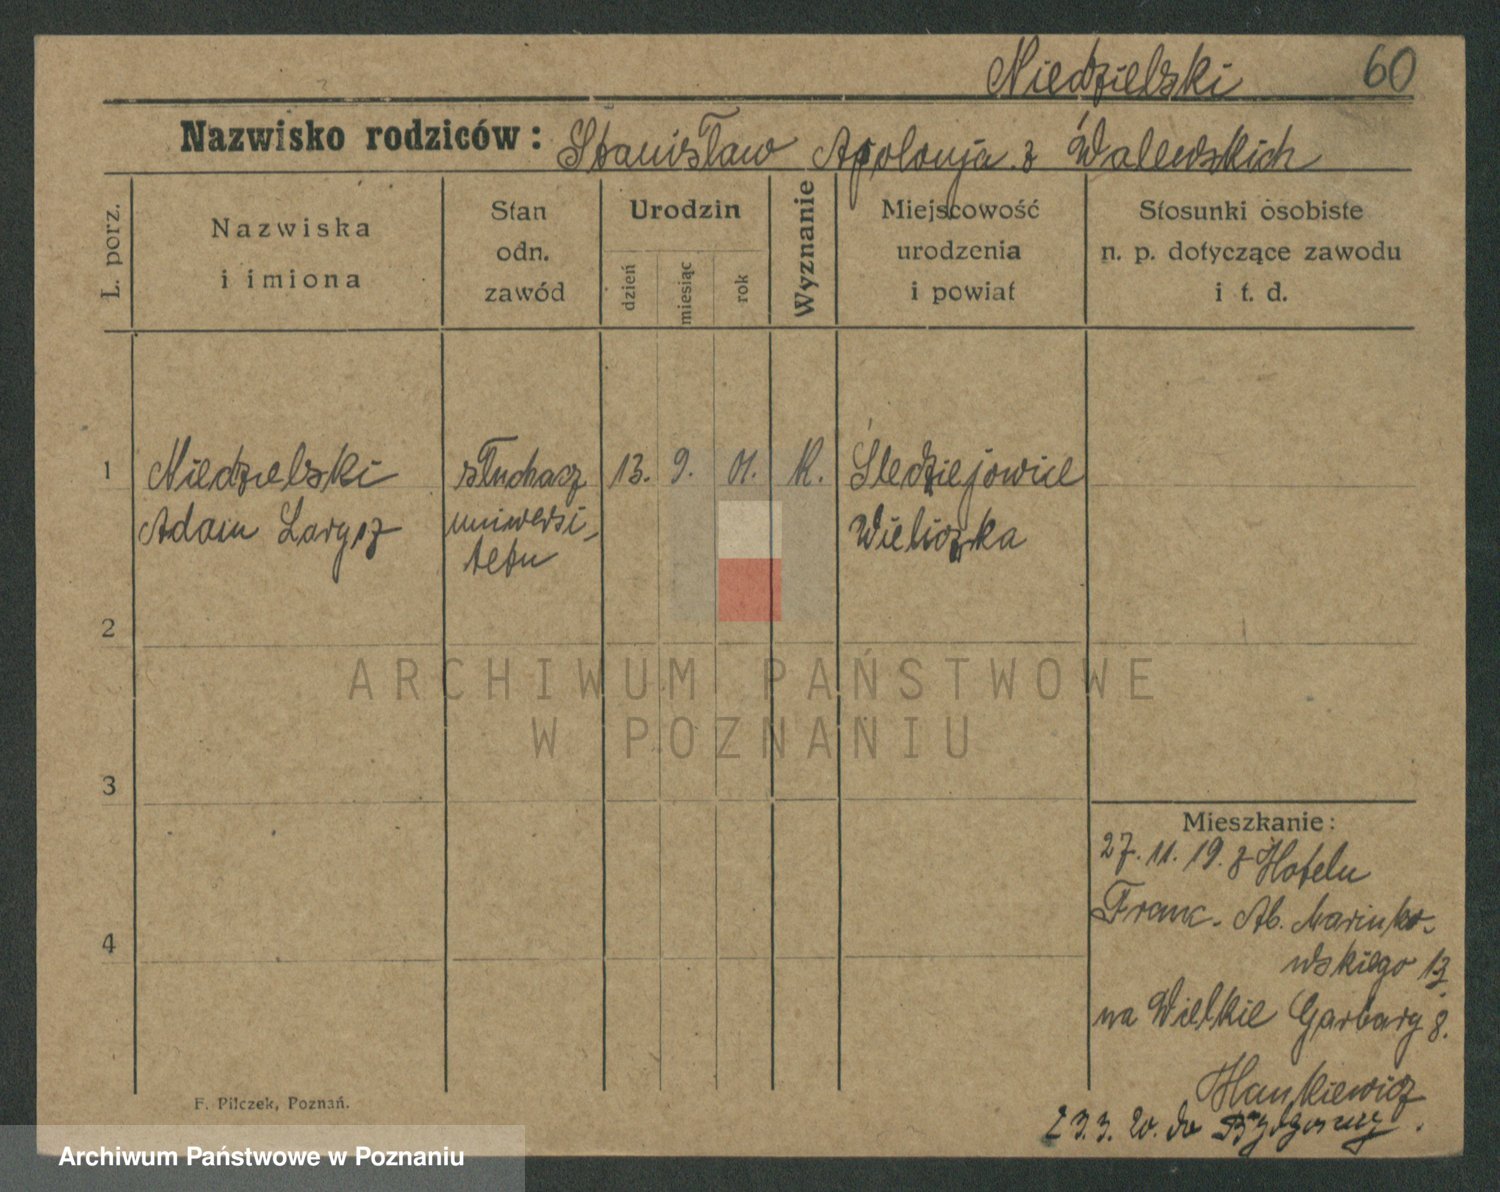 Niedzielski 60
Nazwisko rodziców: Stanisław Apolonja z Walewskich
L. porz.
Nazwiska
i imiona
Stan
odn.
zawód
Urodzin
dzień
miesiąc
rok
Wyznanie
Miejscowość
urodzenia
i powiat
Stosunki osobiste
n. p. dotyczące zawodu
i t. d.
1
Niedzielski
Adam
słuchacz
uniwersi-
tetu
13. 9. 01. K.
Śledziejowice
Wieliczka
2
ARCHIWUM PAŃSTWOWE
W POZNANIU
3
4
Mieszkanie:
27. 11. 19. z Hotelu
Franc. Al. Marinko-
wskiego 13
na Wielkie Garbary 8.
Hankiewicz
23.3.20. do Bydgoszczy.
F. Pilczek, Poznań.
Archiwum Państwowe w Poznaniu